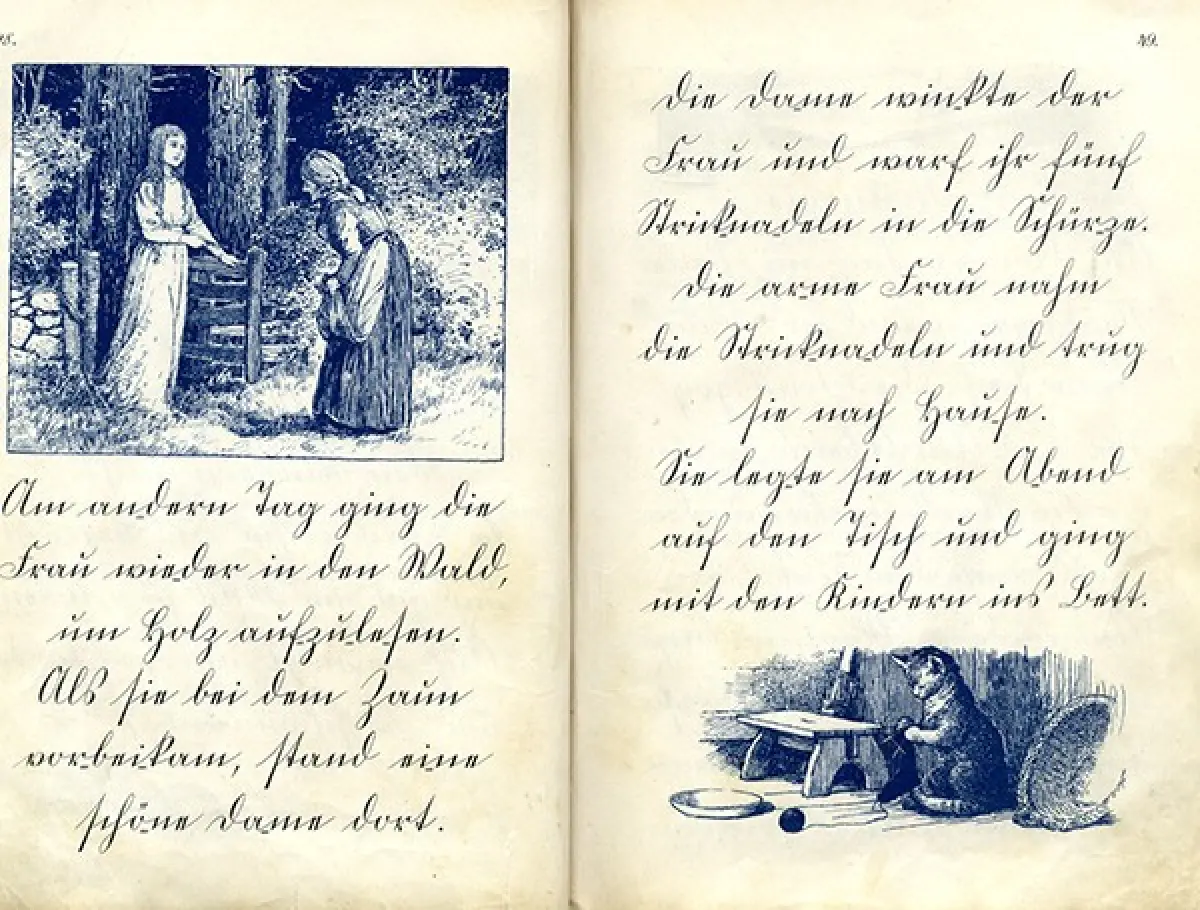 48.
Am andern Tag ging die
Frau wieder in den Wald,
um Holz aufzulesen.
Als sie bei dem Zaun
vorbeikam, stand eine
schöne Dame dort.
49.
Die Dame winkte der
Frau und warf ihr fünf
Stricknadeln in die Schürze.
Die arme Frau nahm
die Stricknadeln und trug
sie nach Hause.
Sie legte sie am Abend
auf den Tisch und ging
mit den Kindern ins Bett.